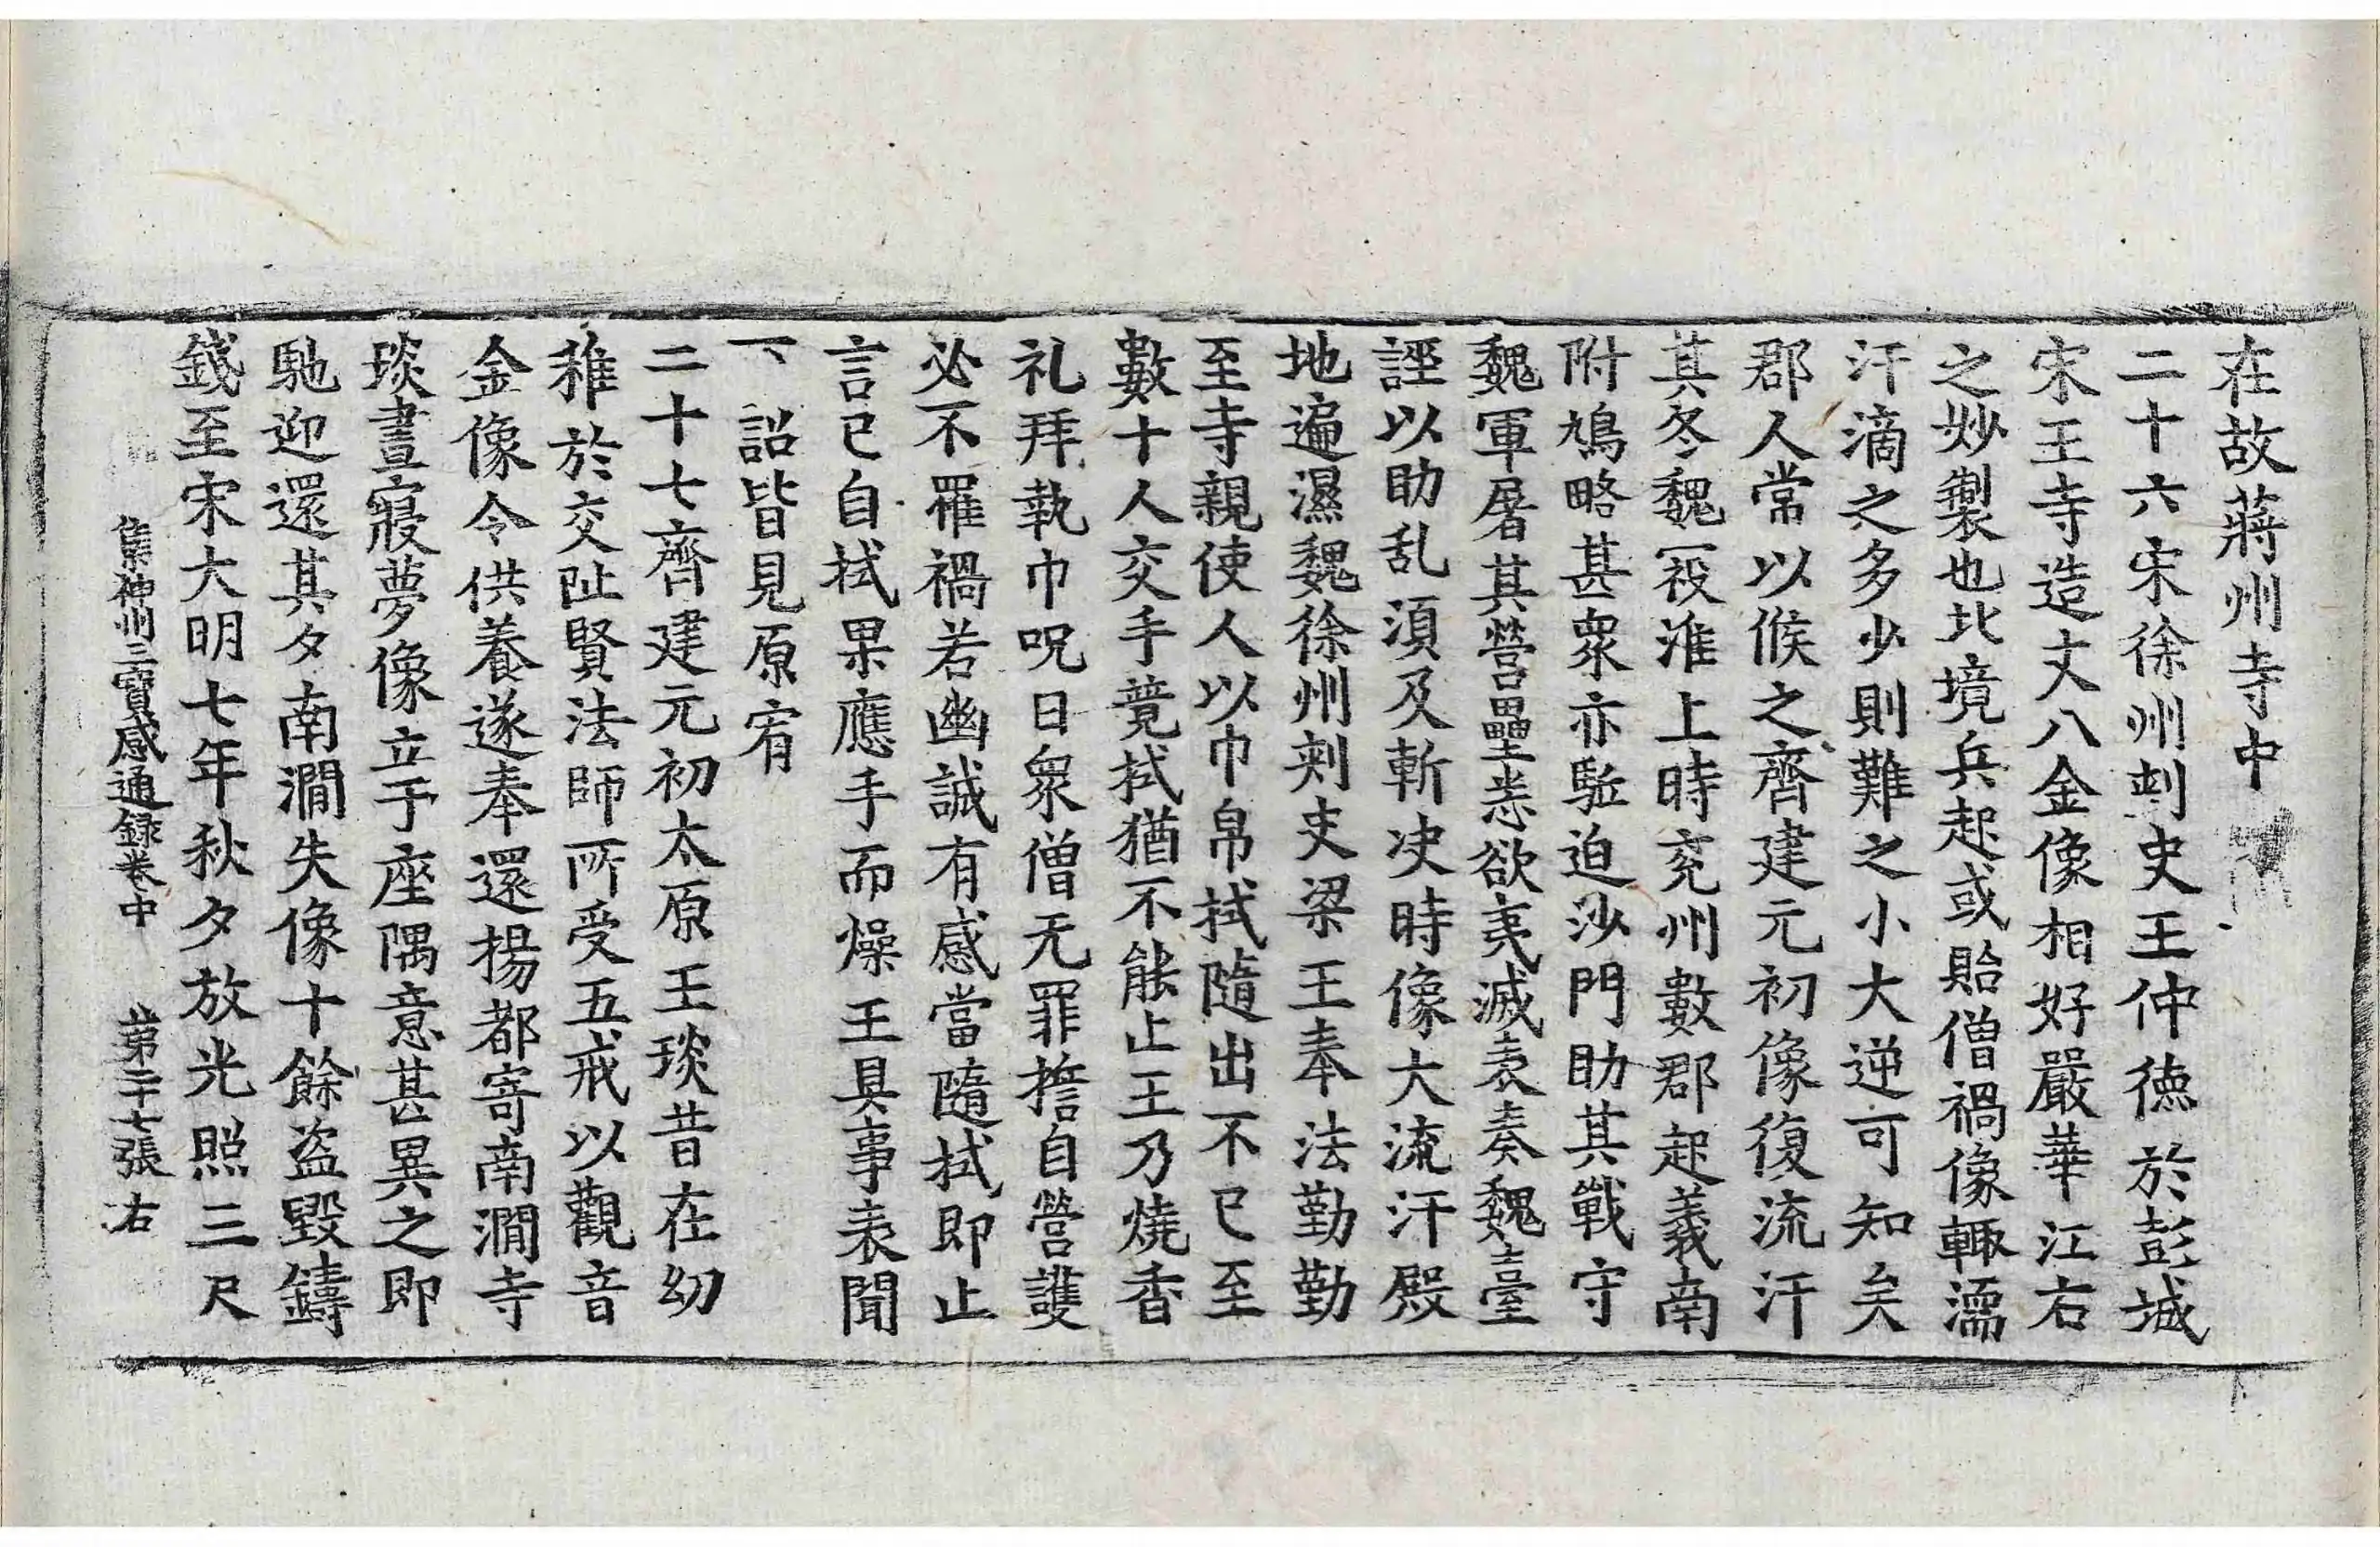 在故蔣州寺中
二十六宋徐州刺史王仲德於彭城
宋王寺造丈八金像相好嚴華江右
之妙製也北境兵起或貽僧禍像輒濡
汗滴之多少則難之小大逆可知矣
郡人常以候之齊建元初像復流汗
其冬魏寇淮上時兖州數郡起義南
附鳩略甚衆亦驅迫沙門助其戰守
魏軍屠其營壘悉欲夷滅表奏魏臺
誣以助乱湏及斬决時像大流汗殿
地遍濕魏徐州刺史梁王奉法勤勤
至寺親使人以巾帛拭隨出不已至
數十人交手竟拭猶不能止王乃燒香
礼拜執巾呪曰衆僧无罪擔自營護
必不罹禍若幽誠有感當隨拭即止
言已自拭果應手而燥王具事表聞
下詔皆見原宥
二十七齊建元初太原王琰昔在幼
稚於交阯賢法師所受五戒以觀音
金像令供養遂奉還揚都寄南澗寺
琰晝寢夢像立于座隅意甚異之即
馳迎還其夕南澗失像十餘盜毀鑄
錢至宋大明七年秋夕放光照三尺
集神州三寶感通録卷中 第二十七張 右